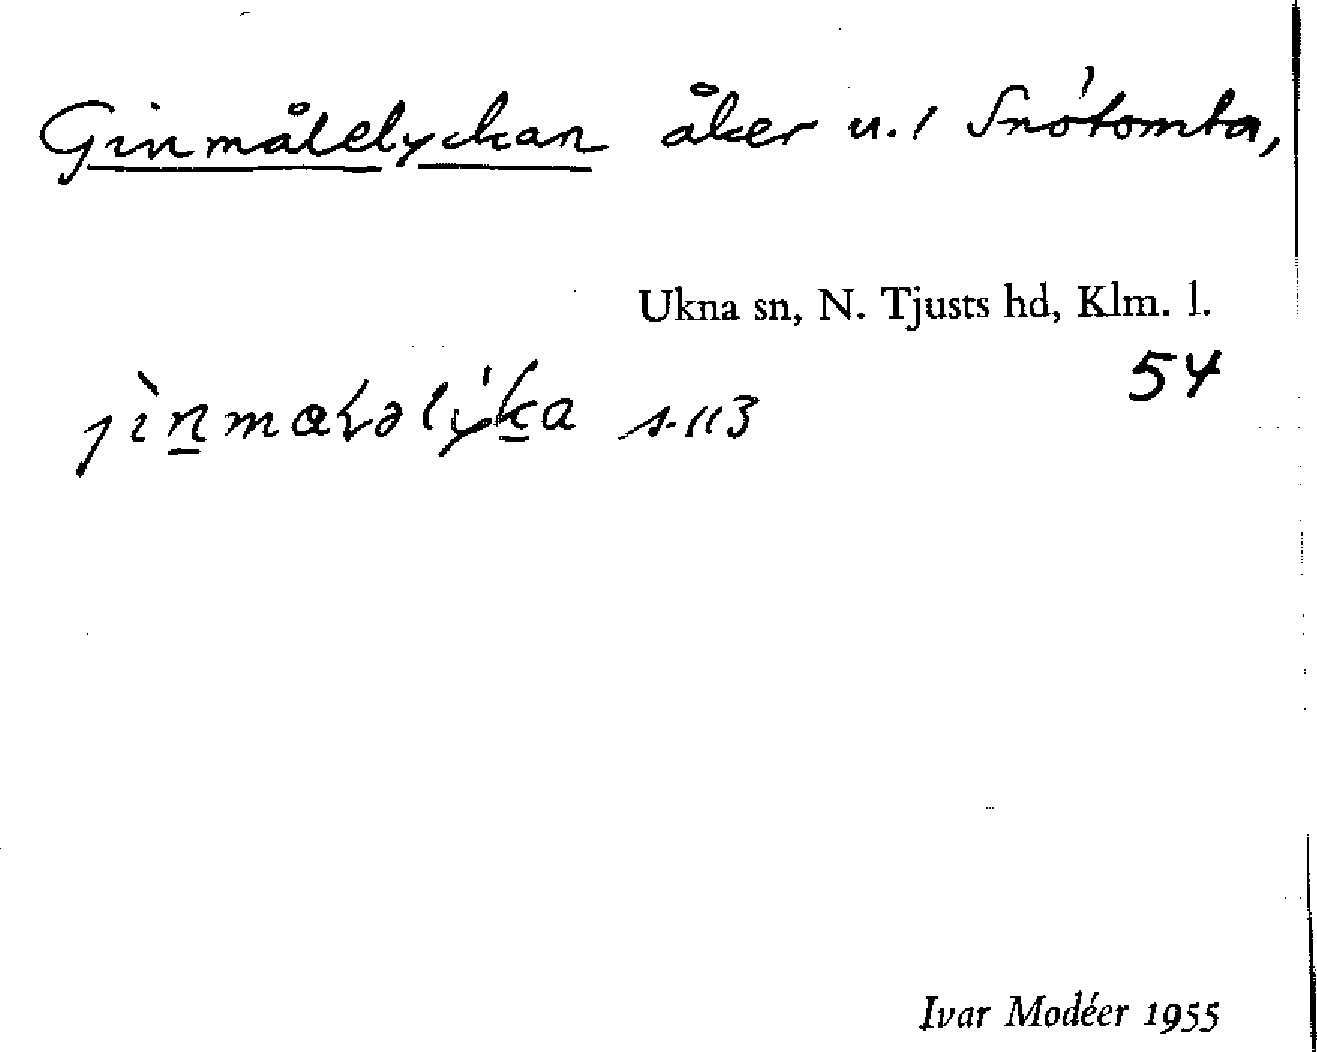 Ginmålelyckan åker u. 1 Snótomta,
Ukna sn, N. Tjusts hd, Klm. l.
54
s. 113
Ivar Modéer 1955